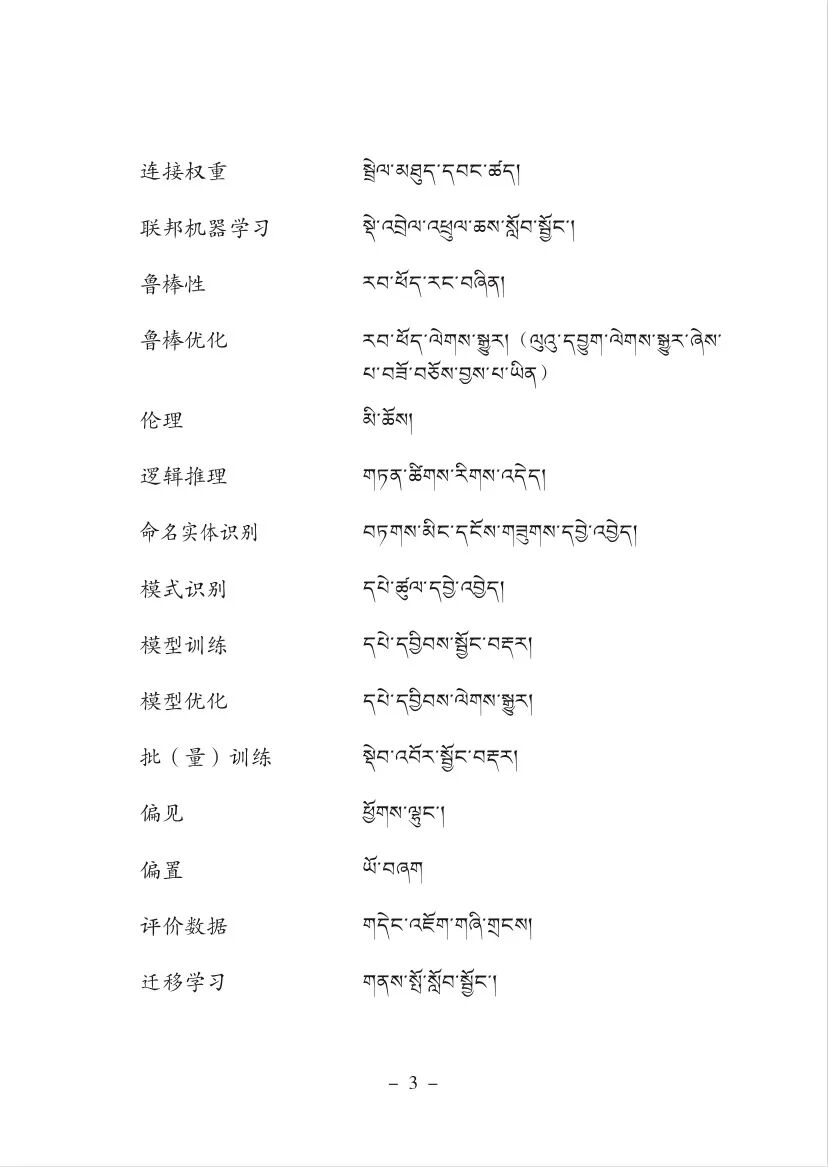 连接权重 སྦྲེལ་མཐུད་དབང་ཚད།
联邦机器学习 སྡེ་འབྲེལ་འཕྲུལ་ཆས་སློབ་སྦྱོང་།
鲁棒性 རབ་ཕོད་རང་བཞིན།
鲁棒优化 རབ་ཕོད་ལེགས་སྒྱུར། （ལུའུ་དབྱུག་ལེགས་སྒྱུར་ཞེས་
པ་བཟོ་བཅོས་བྱས་པ་ཡིན）
伦理 མི་ཆོས།
逻辑推理 གཏན་ཚིགས་རིགས་འདེད།
命名实体识别 བཏགས་མིང་དངོས་གཟུགས་དབྱེ་འབྱེད།
模式识别 དཔེ་ཚུལ་དབྱེ་འབྱེད།
模型训练 དཔེ་དབྱིབས་སྦྱོང་བརྡར།
模型优化 དཔེ་དབྱིབས་ལེགས་སྒྱུར།
批（量）训练 སྡེབ་འབོར་སྦྱོང་བརྡར།
偏见 ཕྱོགས་ལྷུང་།
偏置 ཡོ་བཞག
评价数据 གདེང་འཇོག་གཞི་གྲངས།
迁移学习 གནས་སྤོ་སློབ་སྦྱོང་།
– 3 –